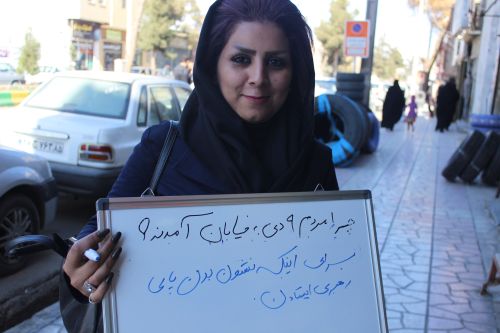 چرا مردم ۹ دی به خیابان آمدند؟
برای اینکه نشون بدن پای
رهبری ایستادن.